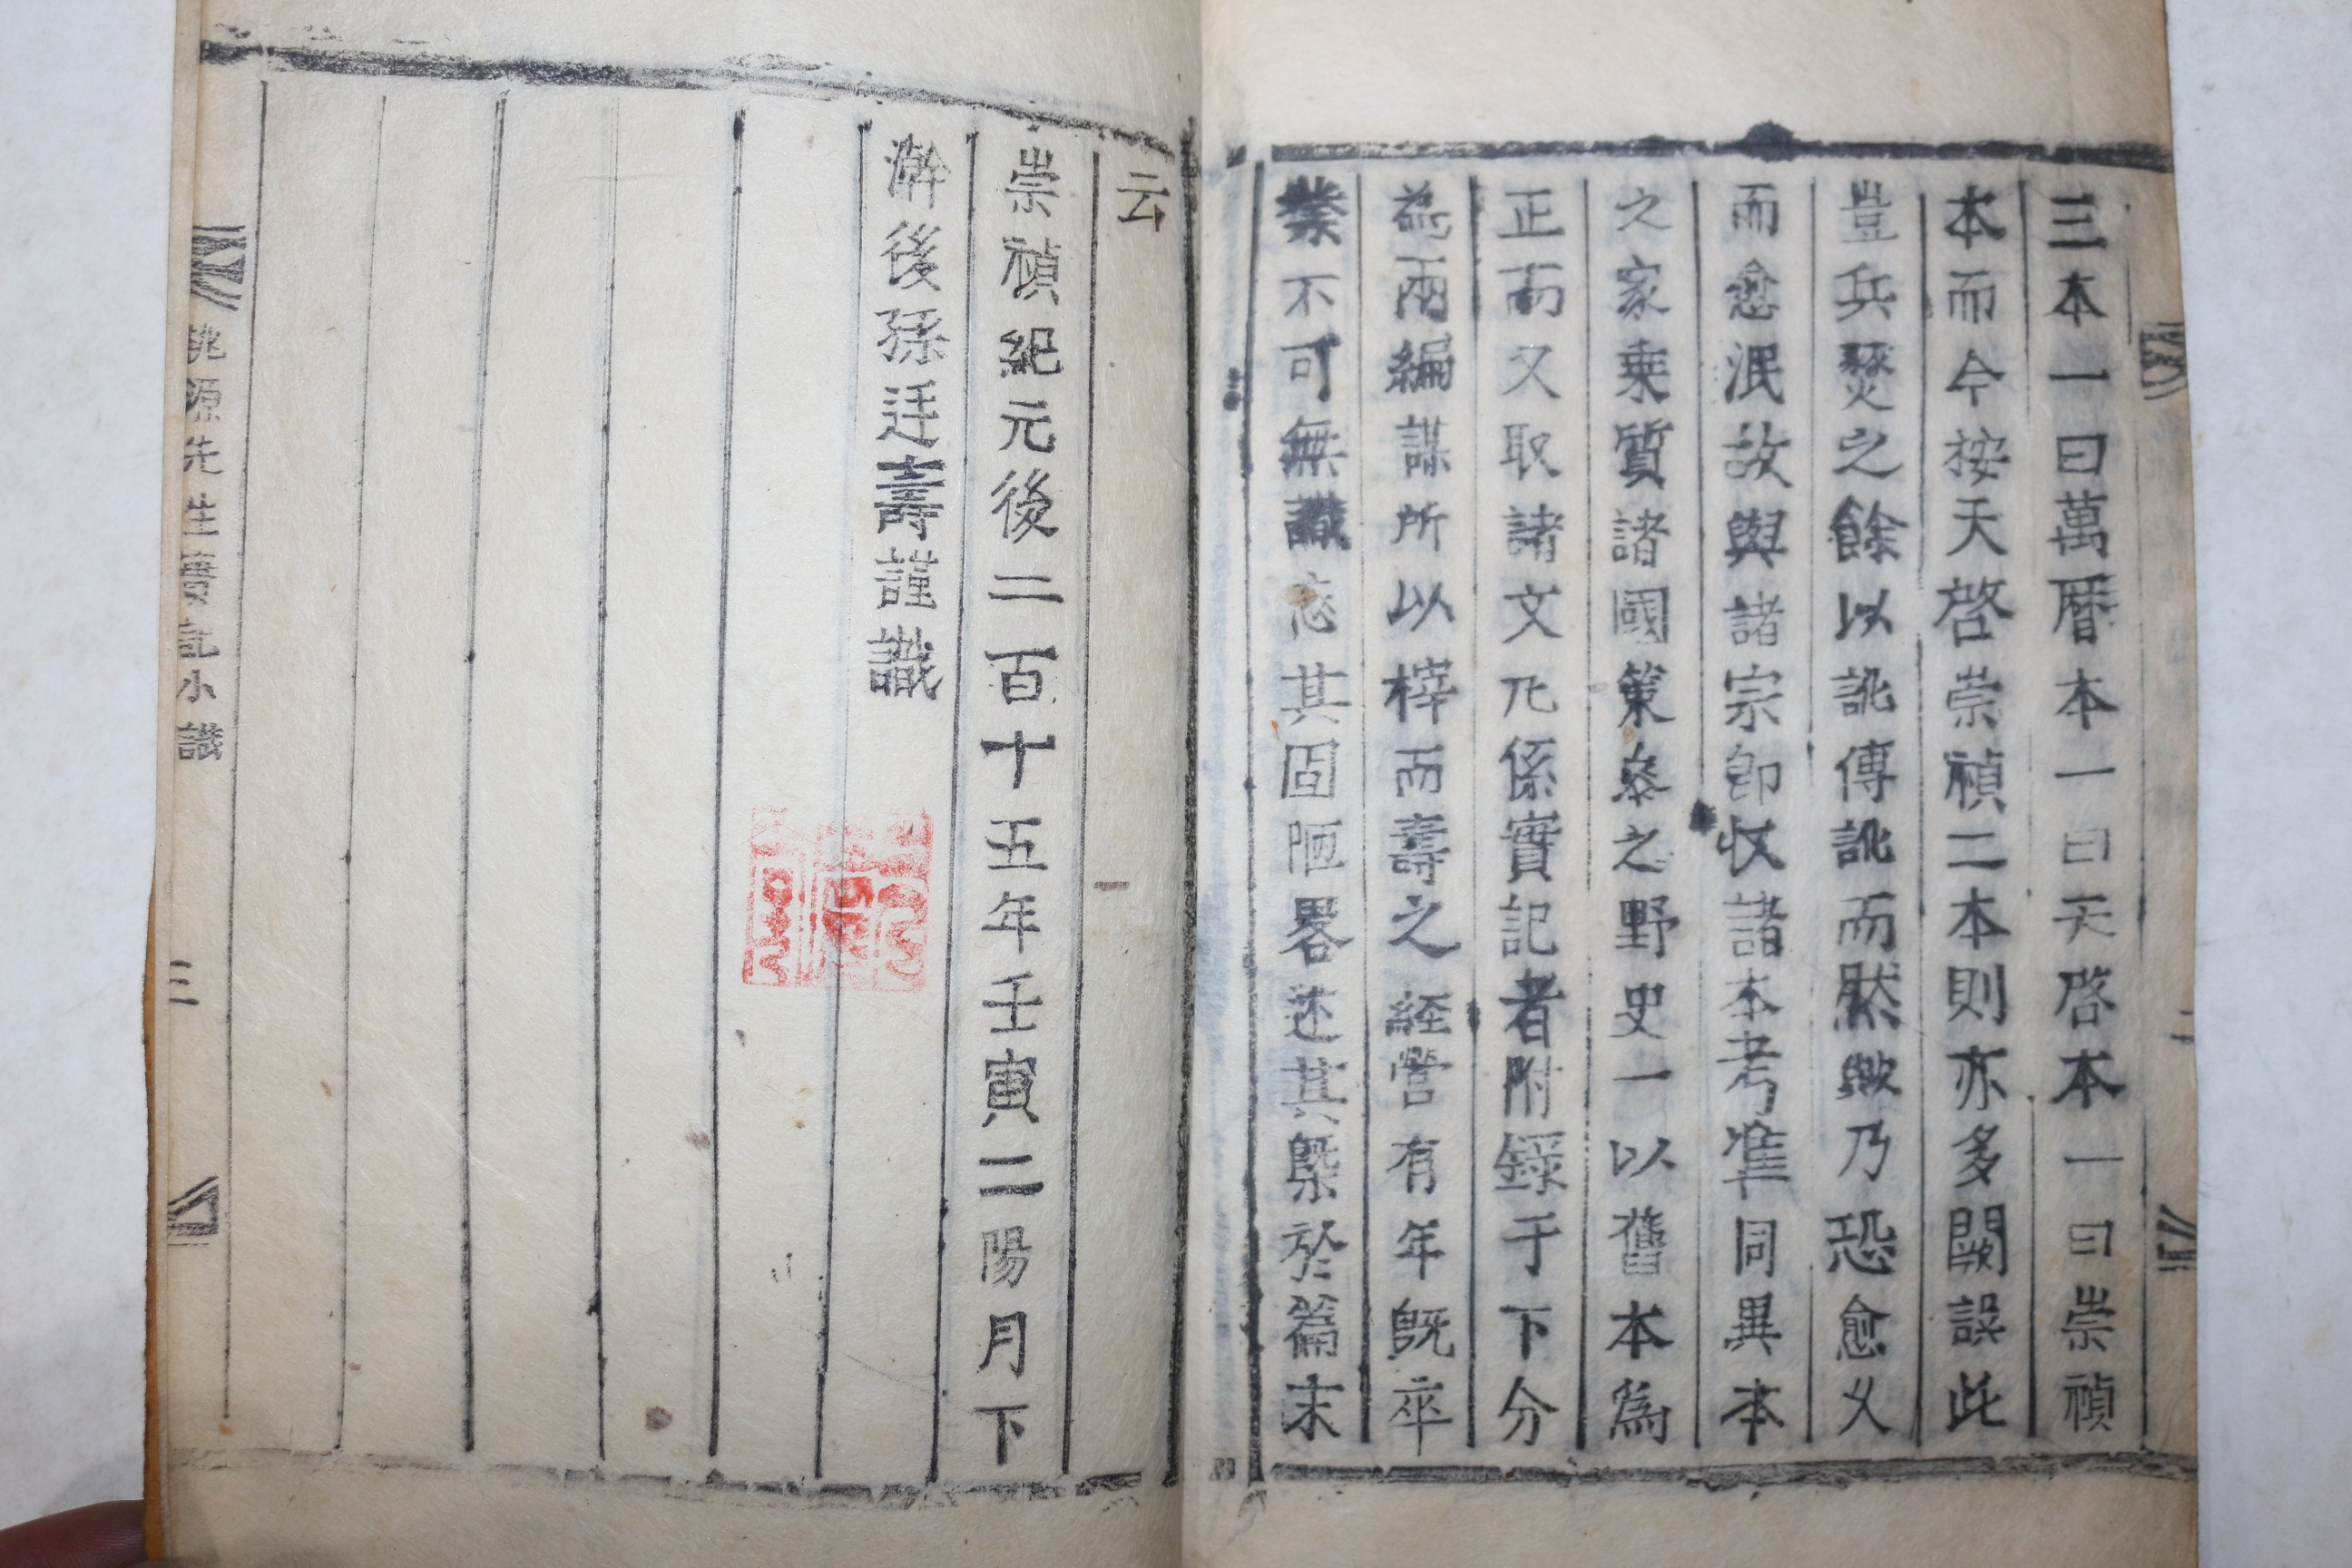 三本一曰萬曆本一曰天啓本一曰崇禎
本而今按天啓崇禎二本則亦多闕誤此
豈兵燹之餘以訛傳訛而然歟乃恐愈乂
而愈泯故與諸宗卽收諸本考準同異本
之家乗質諸國策叅之野史一以舊本爲
正而又取諸文凡係實記者附錄于下分
為兩編謀所以榟而壽之経營有年旣卒
業不可無識忘其固陋畧述其槩於篇末
云
崇禎紀元後二百十五年壬寅二陽月下
澣後孫廷壽謹識
桃源先生實記小識
三